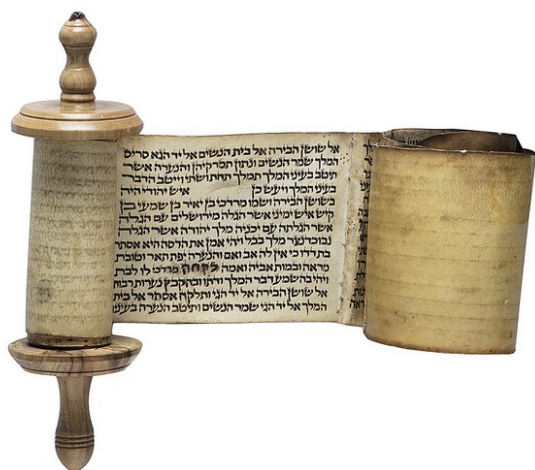 אל שושן הבירה אל בית הנשים אל יד הגא סריס
המלך שמר הנשים ונתון תמרקיהן והנערה אשר
תיטב בעיני המלך תמלך תחת ושתי וייטב הדבר
בעיני המלך ויעש כן איש יהודי היה
בשושן הבירה ושמו מרדכי בן יאיר בן שמעי בן
קיש איש ימיני אשר הגלה מירושלים עם הגלה
אשר הגלתה עם יכניה מלך יהודה אשר הגלה
נבוכדנצר מלך בבל ויהי אמן את הדסה היא אסתר
בת דדו כי אין לה אב ואם והנערה יפת תאר וטובת
מראה ובמות אביה ואמה לקחה מרדכי לו לבת
ויהי בהשמע דבר המלך ודתו ובהקבץ נערות רבות
אל שושן הבירה אל יד הגי ותלקח אסתר אל בית
המלך אל יד הגי שמר הנשים ותיטב הנערה